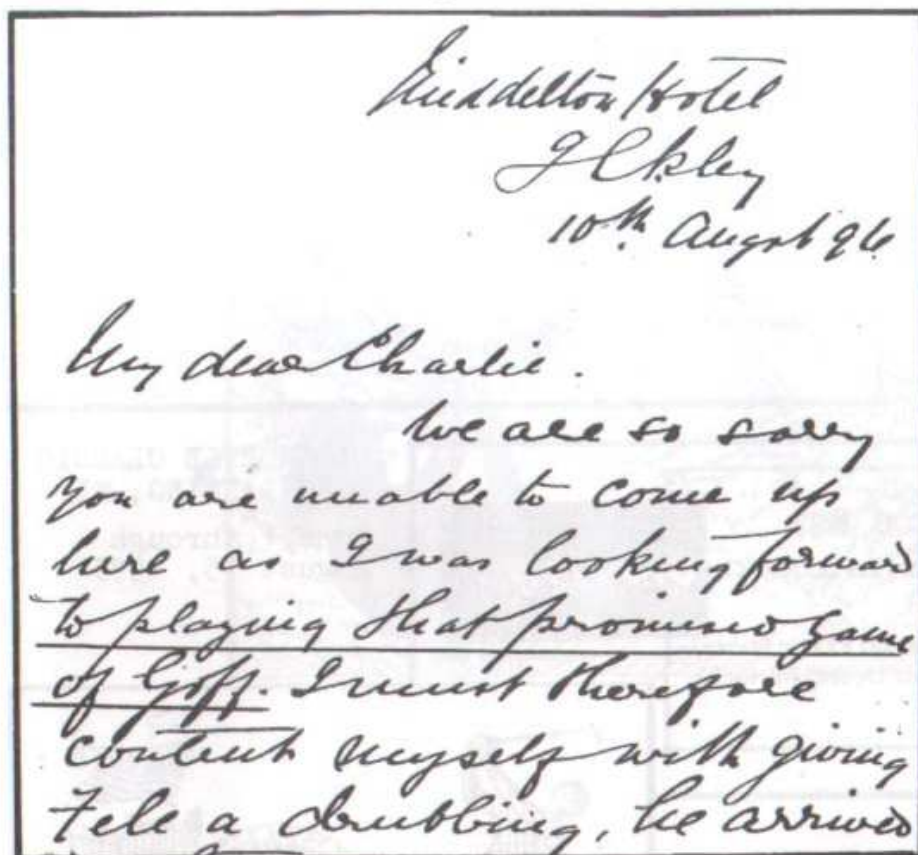 Middelton Hotel
Ilkley
10th August 96
My dear Charlie.
We are so sorry
you are unable to come up
here as I was looking forward
to playing that promised game
of Goff. I must therefore
content myself with giving
a drubbing, he arrived